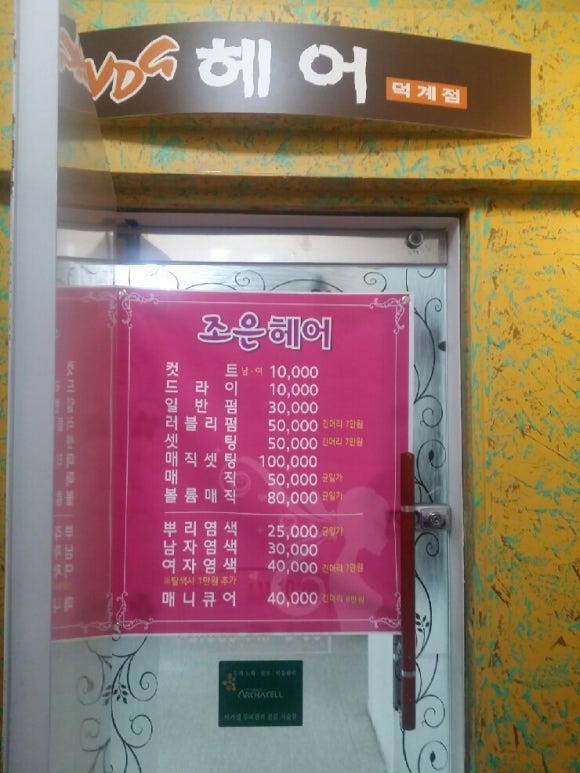 헤어 덕계점
조은헤어
컷 트 남·여 10,000
드라이 10,000
일반펌 30,000
러블리펌 50,000 긴머리 7만원
셋 팅 50,000 긴머리 7만원
매직셋팅 100,000
매 직 50,000 균일가
볼륨매직 80,000 균일가
뿌리염색 25,000 균일가
남자염색 30,000
여자염색 40,000 긴머리 7만원
※탈색시 1만원 추가
매니큐어 40,000 긴머리 8만원
ARCHACELL